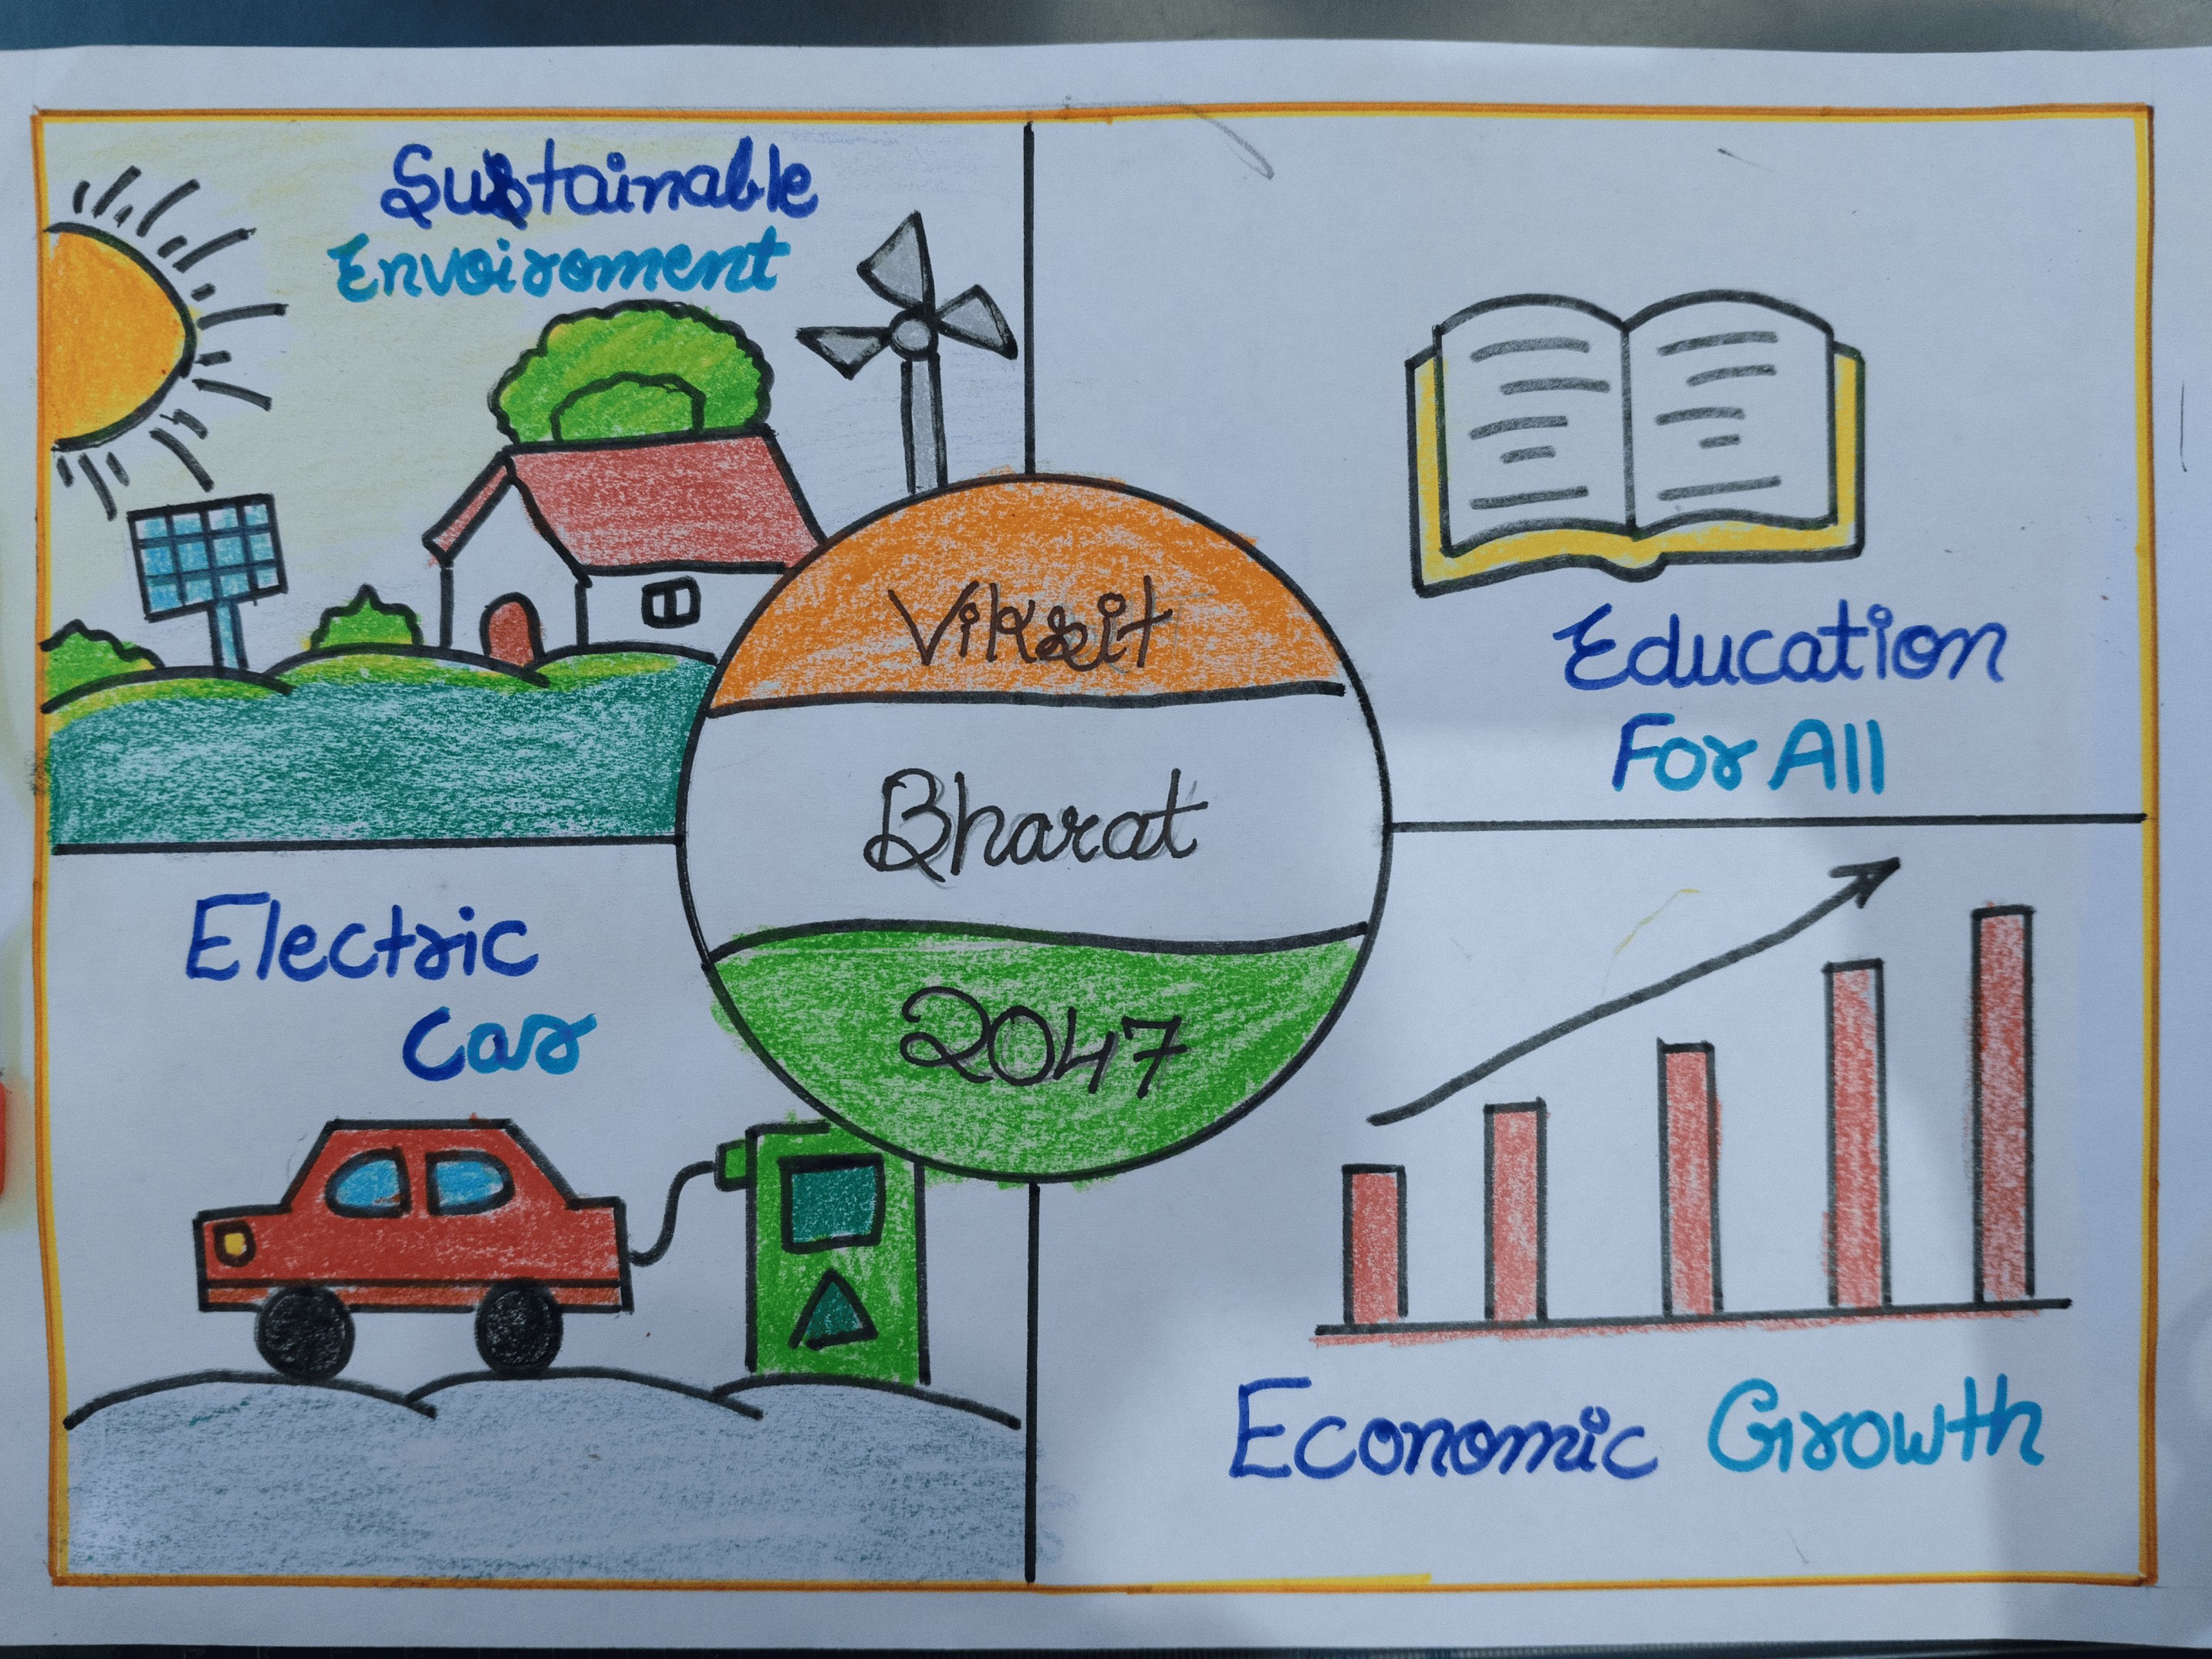 Sustainable
Envoiroment
Education
For All
Viksit
Bharat
2047
Electric
Car
Economic Growth